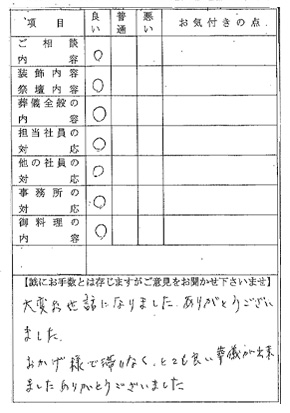 項目 良い 普通 悪い お気付きの点
ご相談内容 ○
装飾内容祭壇内容 ○
葬儀全般の内容 ○
担当社員の対応 ○
他の社員の対応 ○
事務所の対応 ○
御料理の内容 ○
【誠にお手数とは存じますがご意見をお聞かせ下さいませ】
大変お世話になりました.ありがとうござい
ました.
おかげ様で滞りなく、とても良い葬儀が出来
ましたありがとうございました